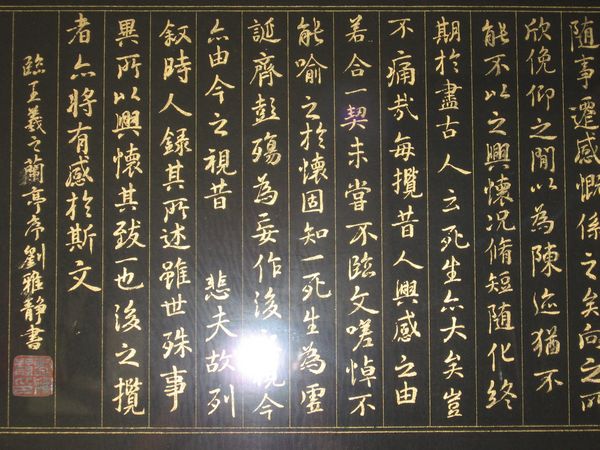 随事遷感慨係之矣向之所
欣俛仰之間以為陳迹猶不
能不以之興懷况脩短随化終
期於盡古人云死生亦大矣豈
不痛哉每攬昔人興感之由
若合一契未嘗不臨文嗟悼不
能喻之於懷固知一死生為虛
誕齊彭殤為妄作後視今
亦由今之視昔 悲夫故列
叙時人録其所述雖世殊事
異所以興懷其致一也後之攬
者亦將有感於斯文
臨王羲之蘭亭序劉雅靜書